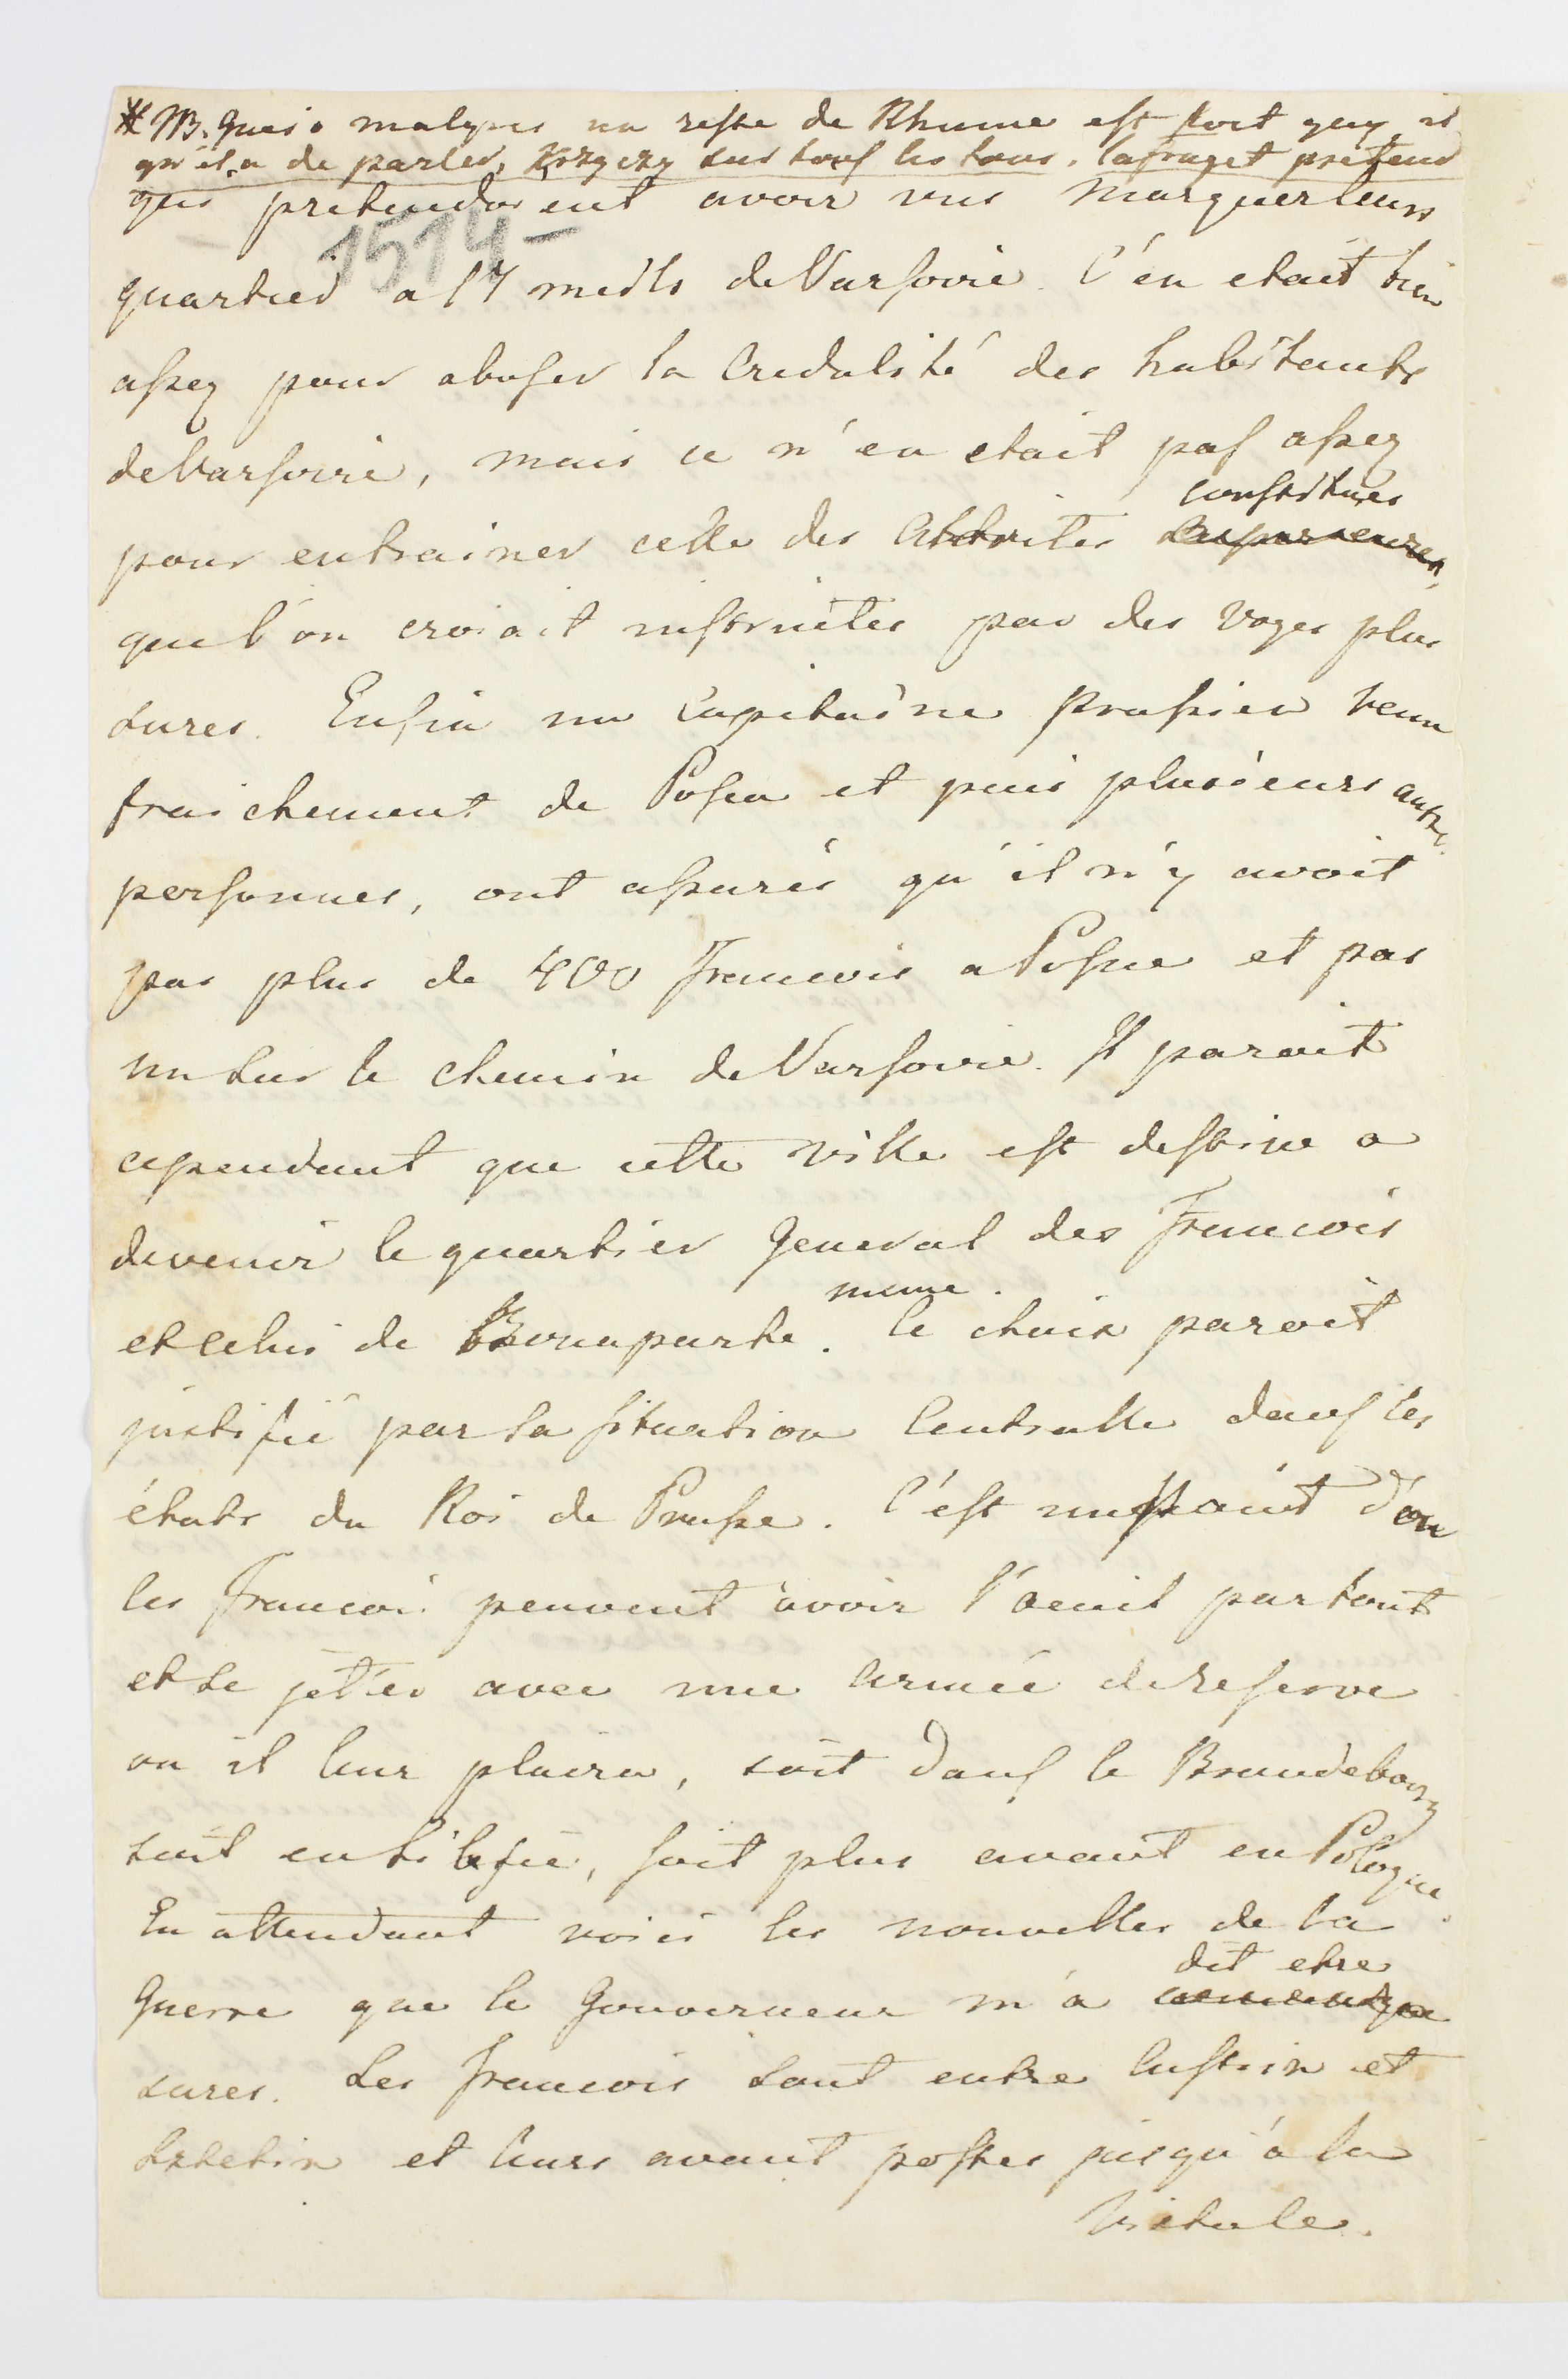 * NB. Gucio malgres un reste de Rhume est fort gay, et
qu'il a de parler, Krzyczy sur touf les tons. Lafraget pretend
qui pretendoient avoir vus marquer leurs
1514-
quartier a 17 meils de Varsovie. C'en etait bien
assez pour abuser la Credulité des habitants
de Varsovie, mais ce n'en etait pas assez
constitues
pour entrainer celle des Autorites superieures,
que l'on croiait instruites par des voyes plus
sures. Enfin un Capitaine Prussien venu
fraichement de Posen et puis plusieurs autre
personnes, ont assurés qu'il n'y avoit
pas plus de 400 Francois a Posne et pas
un sur le chemin de Varsovie. Il parait
cependant que cette ville est destine a
devenir le quartier General des Francois
meme.
et celui de Bonaparte. Ce choix paroit
justifié par sa situation Centralle dans les
états du Roi de Prusse. C'est un point d'ou
les Francois peuvent avoir l'oeuil partout
et se jeter avec une armée de reserve
ou il leur plaira, soit dans le Brandebourg
soit en Silesie, soit plus avant en Pologne.
En attendant voici les nouvelles de la
dit etre
Guerre que le Gouverneur m'a
sures. Les Francois sont entre Custrin et
Sztetin et leurs avant postes jusqu'à la
Vistule.